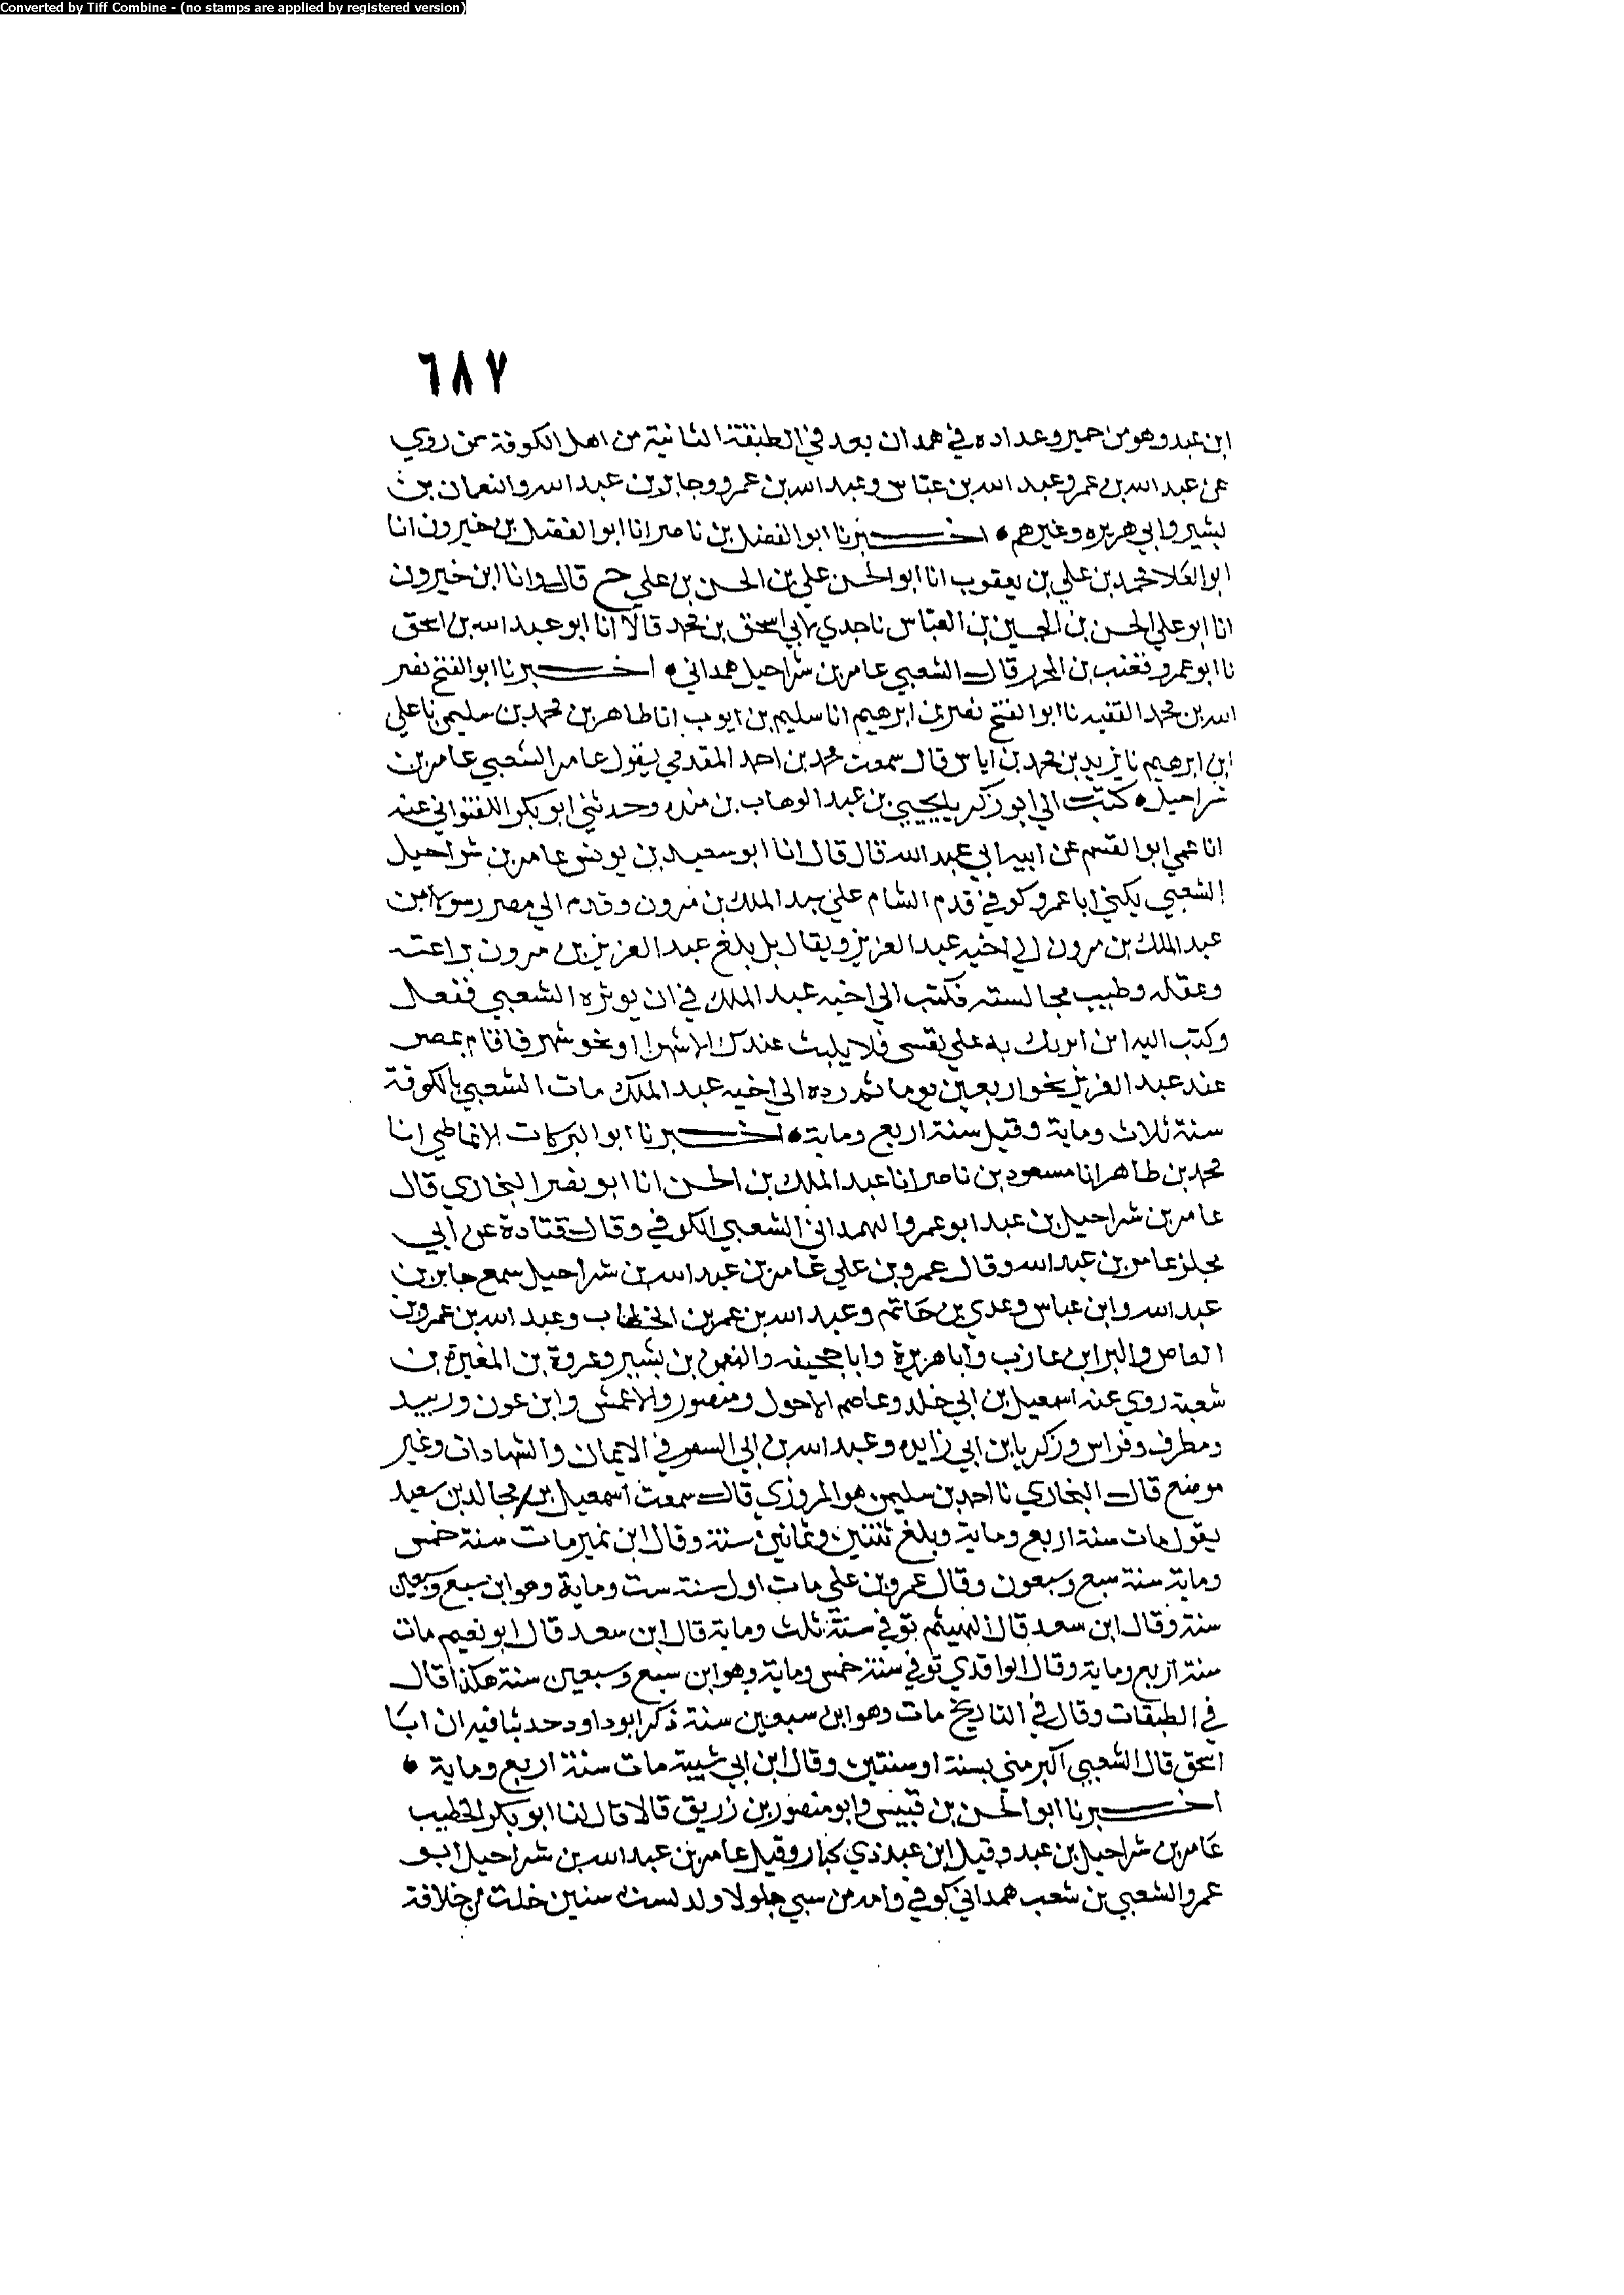 Converted by Tiff Combine - (no stamps are applied by registered version)
٦٨٧
ابن عبد وهو من حمير وعداده في همدان يعد في الطبقة الثانية من اهل الكوفة ممن روي
عن عبد الله بن عمر وعبد الله بن عباس وعبد الله بن عمرو وجابر بن عبد الله والنعمان بن
بشير وابي هريره وغيرهم • اخبرنا ابو الفضل بن ناصر انا ابو الفضل بن خيرون انا
ابو العلا محمد بن علي بن يعقوب انا ابو الحسن علي بن الحسن بن علي ح قال وانا ابن خيرون
انا ابو علي الحسن بن الحسين بن العباس نا جدي لابي اسحق بن محمد قالا انا ابو عبد الله بن اسحق
نا ابو عمرو قعنب بن المحرر قال الشعبي عامر بن شراحيل همداني • اخبرنا ابو الفتح نصر
الله بن محمد الفقيه نا ابو الفتح نصر بن ابرهيم انا سليم بن ايوب انا طاهر بن محمد بن سليمن نا علي
ابن ابرهيم نا يزيد بن محمد بن اياس قال سمعت محمد بن احمد المقدمي يقول عامر الشعبي عامر بن
شراحيل • كتب الي ابو زكريا يحيي بن عبد الوهاب بن منده وحدثني ابو بكر اللفتواني عنه
انا عمي ابو القسم عن ابيه ابي عبد الله قال قال انا ابو سعيد بن يونس عامر بن شراحيل
الشعبي يكني ابا عمرو كوفي قدم الشام علي عبد الملك بن مرون وقدم الي مصر رسولا من
عبد الملك بن مرون الي اخيه عبد العزيز ويقال بل بلغ عبد العزيز بن مرون براعته
وعقله وطيب مجالسته فكتب الي اخيه عبد الملك في ان يوثره الشعبي ففعل
وكتب اليه ان اثرتك به علي نفسي فلا يلبث عندك الا شهرا او نحو شهر فاقام بمصر
عند عبد العزيز نحو اربعين يوما ثم رده الي اخيه عبد الملك مات الشعبي بالكوفة
سنة ثلاث وماية وقيل سنة اربع وماية • اخبرنا ابو البركات الانماطي انا
محمد بن طاهر انا مسعود بن ناصر انا عبد الملك بن الحسن انا ابو نصر البخاري قال
عامر بن شراحيل بن عبد ابو عمرو الهمداني الشعبي الكوفي وقال قتادة عن ابي
مجلز عامر بن عبد الله وقال عمرو بن علي عامر بن عبد الله بن شراحيل سمع جابر بن
عبد الله وابن عباس وعدي بن حاتم وعبد الله بن عمر بن الخطاب وعبد الله بن عمرو بن
العاص والبرا بن عازب وابا هريرة وابا جحيفه والنعمن بن بشير وعروة بن المغيرة بن
شعبة روي عنه اسمعيل بن ابي خلد وعاصم الاحول ومنصور والاعمش وابن عون وزبيد
ومطرف وفراس وزكريا بن ابي زايده وعبد الله بن ابي السفر في الايمان والشهادات وغير
موضع قال البخاري نا احمد بن سليمن هو المروزي قال سمعت اسمعيل بن مجالد بن سعيد
يقول مات سنة اربع وماية وبلغ ثنتين وثمانين سنة وقال ابن نمير مات سنة خمس
وماية سنة سبع وسبعون وقال عمرو بن علي مات اول سنة ست وماية وهو ابن سبع وسبعين
سنة وقال ابن سعد قال الهيثم توفي سنة ثلث وماية قال ابن سعد قال ابو نعيم مات
سنة اربع وماية وقال الواقدي توفي سنة خمس وماية وهو ابن سبع وسبعين سنة هكذا قال
في الطبقات وقال في التاريخ مات وهو ابن سبعين سنة ذكر ابو داود حدثنا فيه ان ابا
اسحق قال الشعبي اكبر مني بسنة او سنتين وقال ابن ابي شيبة مات سنة اربع وماية •
اخبرنا ابو الحسن بن قبيس وابو منصور بن زريق قالا قال لنا ابو بكر الخطيب
عامر بن شراحيل بن عبد وقيل ابن عبد ذي كبار وقيل عامر بن عبد الله بن شراحيل ابو
عمرو الشعبي بن شعب همداني كوفي وامه من سبي جلولا ولد لست سنين خلت من خلافة